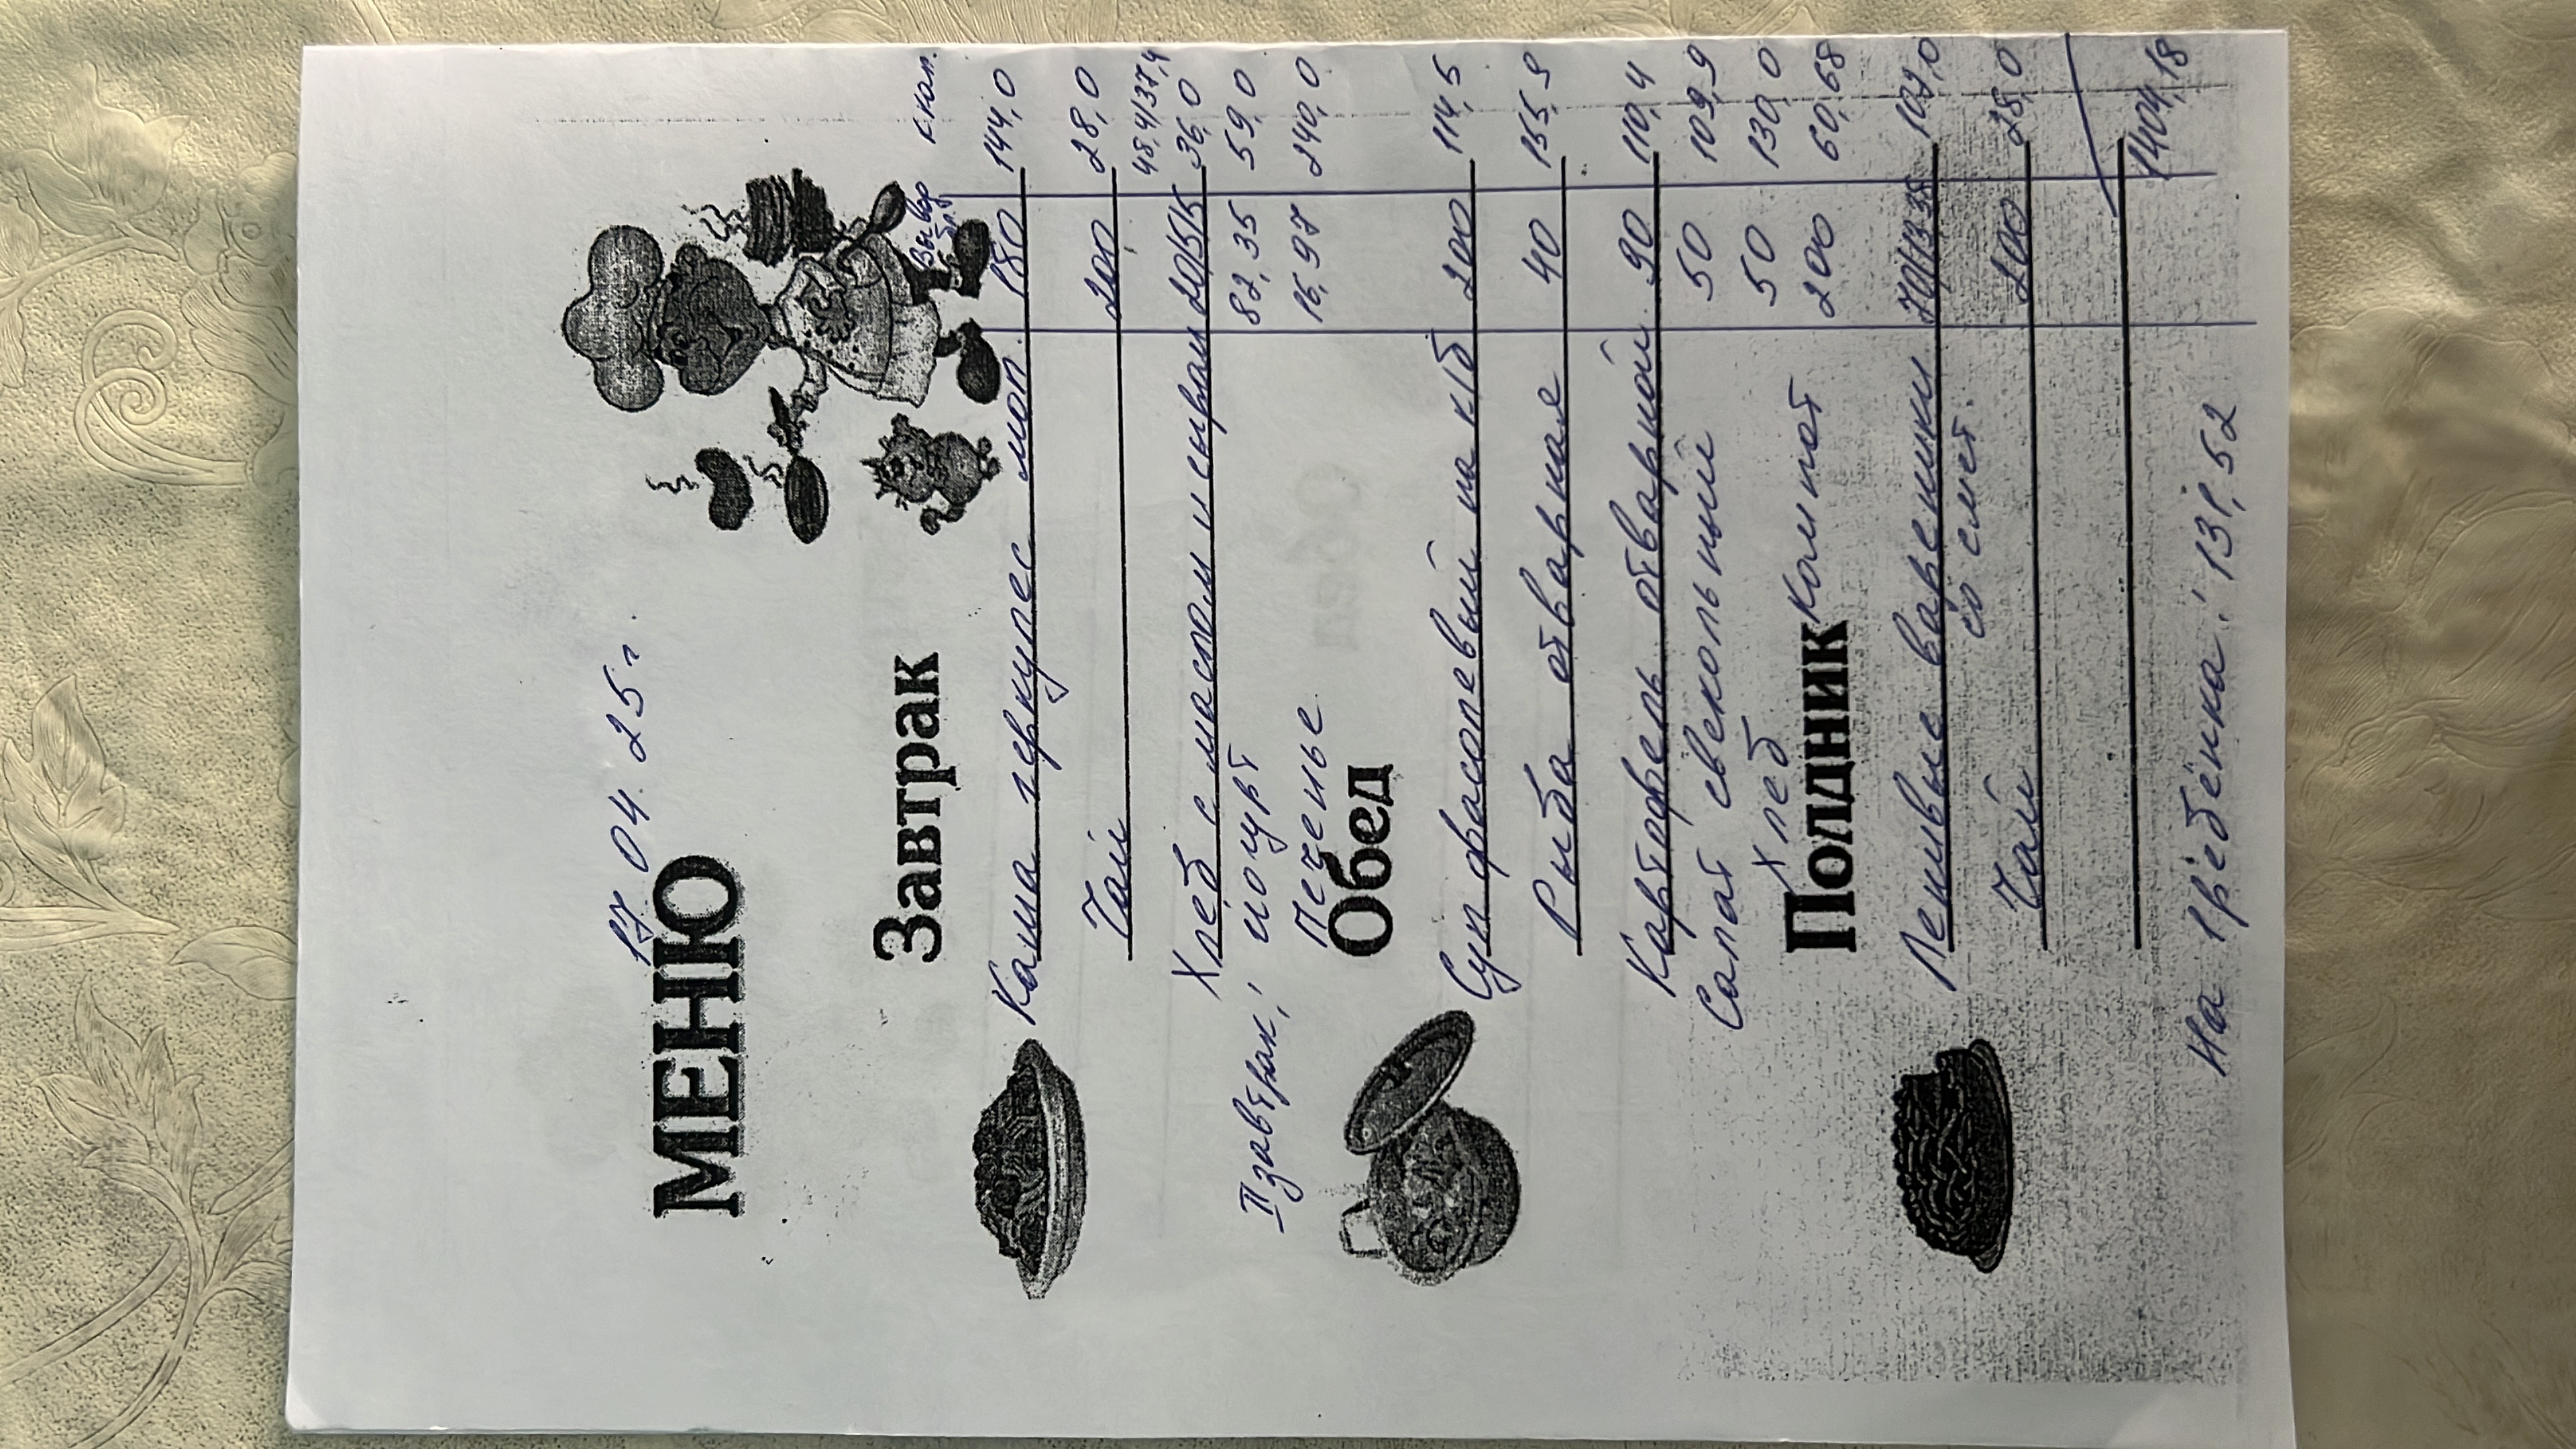 17.04.25г.
МЕНЮ
Выход
ккал.
Завтрак
Каша геркулес мол. 180 144,0
Чай 200 28,0
48,4/37,4
Хлеб с маслом и сыром 20/5/5 36,0
II завтрак: йогурт 82,35 59,0
Печенье 16,97 240,0
Обед
Суп фасолевый на к/б 200 114,5
Рыба отварная 40 155,9
Картофель отварной 90 110,4
Салат свекольный 50 109,9
Хлеб 50 130,0
Компот 200 60,68
Полдник
Ленивые вареники 70/13,35 102,0
со смет.
Чай 200 28,0
1404,18
На 1 ребёнка: 131,52